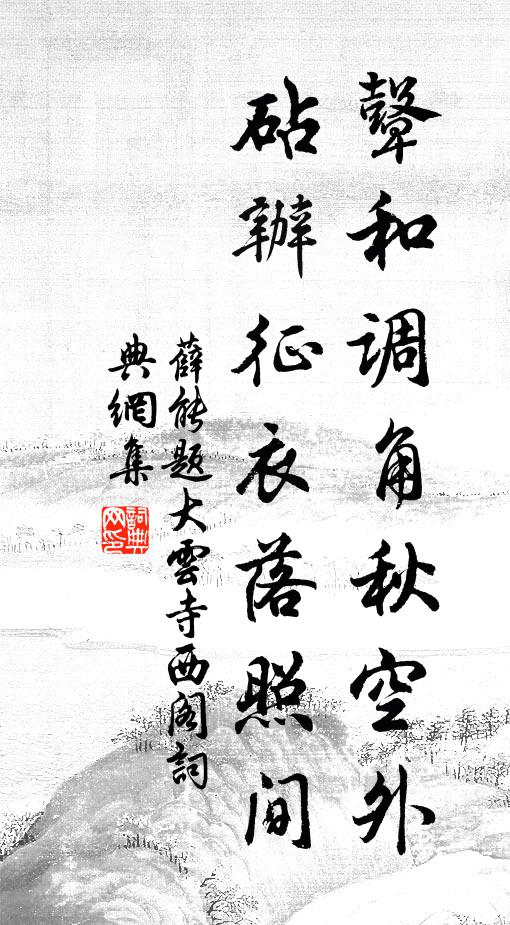 聲和調角秋空外
砧辦征衣落照間
薛能題大雲寺西阁詞
典網集
詞典网印